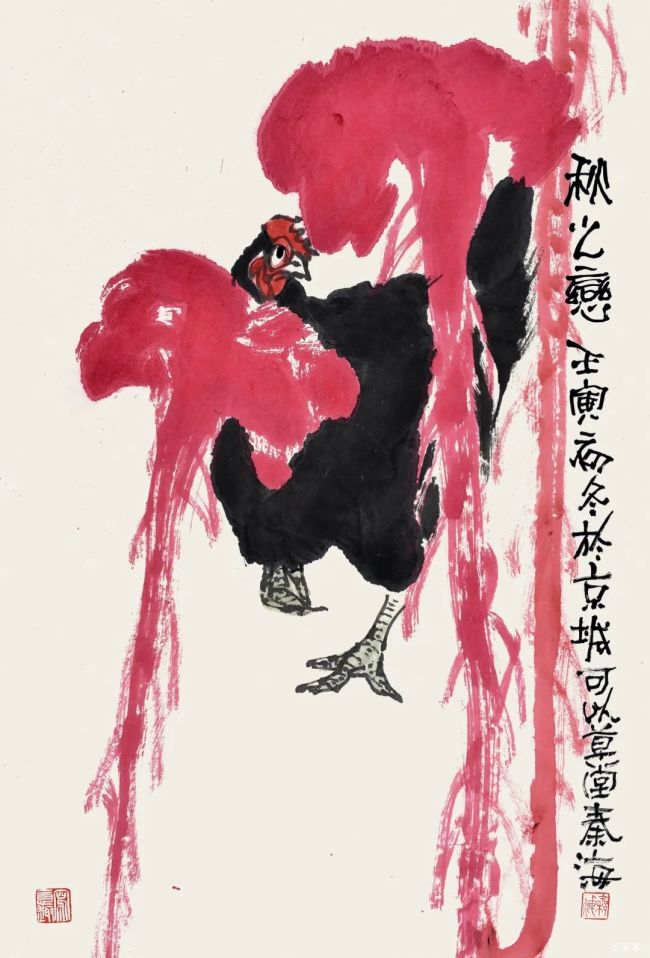 秋之恋 壬寅初冬於京城可以草堂秦海